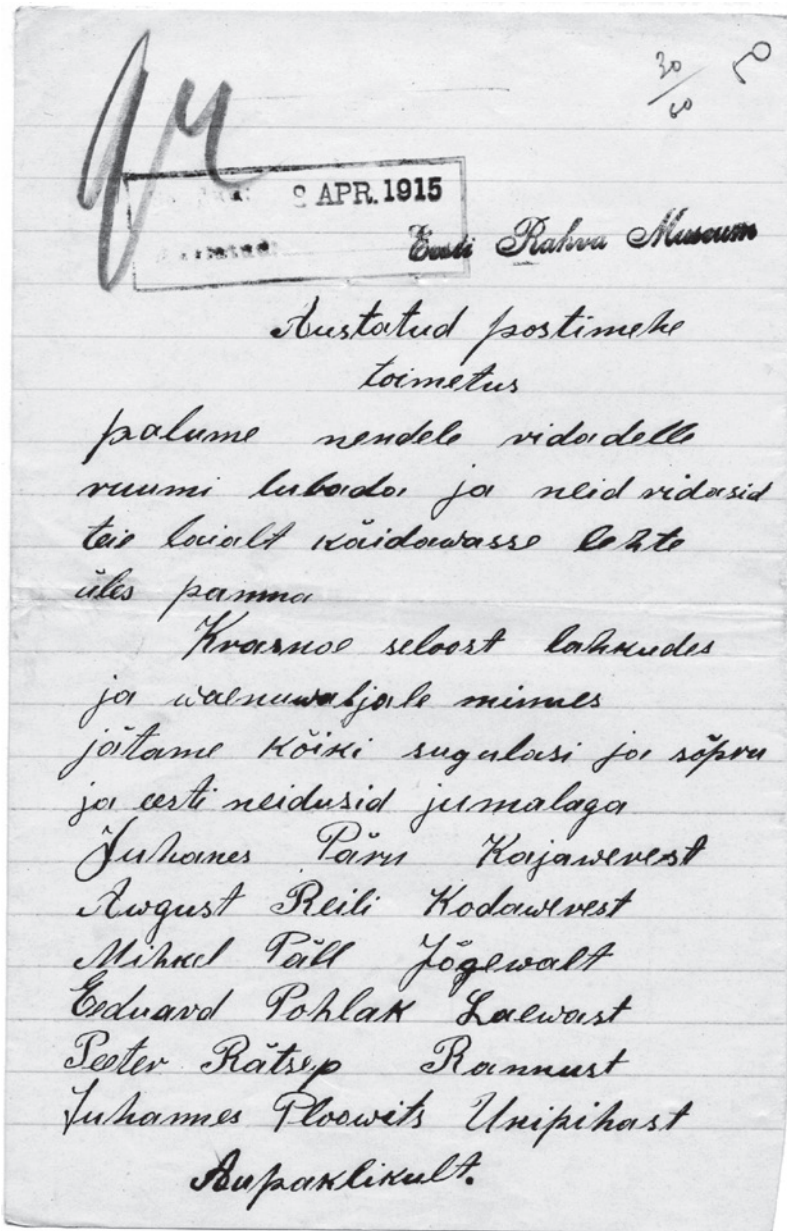 30
60
2 APR. 1915
Eesti Rahva Museum
Austatud postimehe
toimetus
palume nendele ridadelle
ruumi lubada ja neid ridasid
teie laialt käidawasse lehte
üles panna
Krasnoe seloost lahkudes
ja waenuwäljale minnes
jätame kõiki sugulasi ja sõpru
ja eesti neidusid jumalaga
Juhanes Pärn Kajawerest
Awgust Reili Kodawerest
Mihkel Päll Jõgewalt
Eeduard Pohlak Laewast
Peeter Rätsep Rannust
Juhannes Ploowits Unipihast
Aupaklikult.